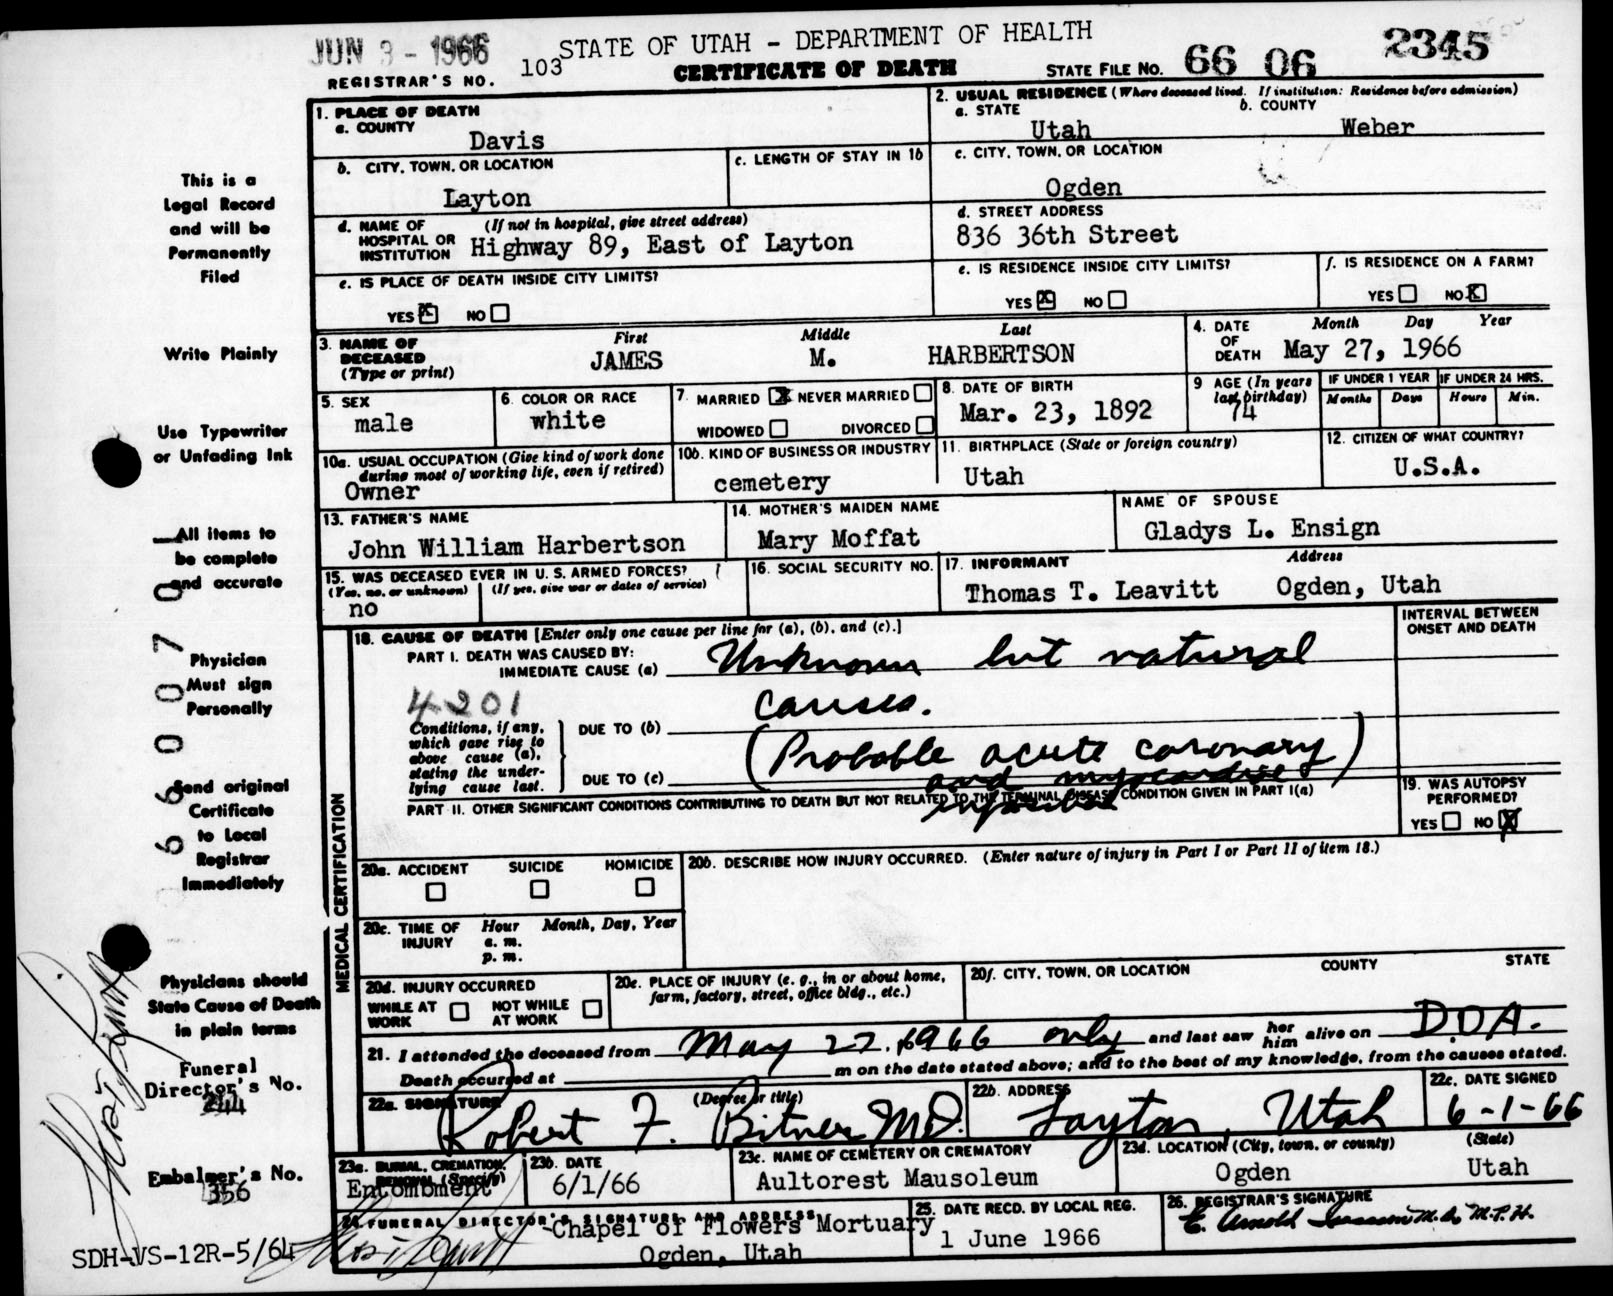 JUN 3 - 1966
STATE OF UTAH - DEPARTMENT OF HEALTH
REGISTRAR'S NO. 103
CERTIFICATE OF DEATH
STATE FILE NO. 66 06 2345
1. PLACE OF DEATH
a. COUNTY
Davis
2. USUAL RESIDENCE (Where deceased lived. If institution: Residence before admission)
a. STATE b. COUNTY
Utah Weber
b. CITY, TOWN, OR LOCATION
Layton
c. LENGTH OF STAY IN 1b
c. CITY, TOWN, OR LOCATION
Ogden
d. NAME OF HOSPITAL OR INSTITUTION (If not in hospital, give street address)
Highway 89, East of Layton
d. STREET ADDRESS
836 36th Street
e. IS PLACE OF DEATH INSIDE CITY LIMITS?
YES X NO
e. IS RESIDENCE INSIDE CITY LIMITS?
YES X NO
f. IS RESIDENCE ON A FARM?
YES NO X
3. NAME OF DECEASED (Type or print)
First Middle Last
JAMES M. HARBERTSON
4. DATE OF DEATH Month Day Year
May 27, 1966
5. SEX
male
6. COLOR OR RACE
white
7. MARRIED X NEVER MARRIED
WIDOWED DIVORCED
8. DATE OF BIRTH
Mar. 23, 1892
9 AGE (In years last birthday)
74
IF UNDER 1 YEAR
Months Days
IF UNDER 24 HRS.
Hours Min.
10a. USUAL OCCUPATION (Give kind of work done during most of working life, even if retired)
Owner
10b. KIND OF BUSINESS OR INDUSTRY
cemetery
11. BIRTHPLACE (State or foreign country)
Utah
12. CITIZEN OF WHAT COUNTRY?
U.S.A.
13. FATHER'S NAME
John William Harbertson
14. MOTHER'S MAIDEN NAME
Mary Moffat
NAME OF SPOUSE
Gladys L. Ensign
15. WAS DECEASED EVER IN U. S. ARMED FORCES?
(Yes, no, or unknown) (If yes, give war or dates of service)
no
16. SOCIAL SECURITY NO.
17. INFORMANT Address
Thomas T. Leavitt Ogden, Utah
MEDICAL CERTIFICATION
18. CAUSE OF DEATH [Enter only one cause per line for (a), (b), and (c).]
INTERVAL BETWEEN ONSET AND DEATH
PART I. DEATH WAS CAUSED BY:
IMMEDIATE CAUSE (a) Unknown but natural
4201 causes.
Conditions, if any, which gave rise to above cause (a), stating the underlying cause last.
DUE TO (b)
(Probable acute coronary
DUE TO (c) and myocardial)
infarction
PART II. OTHER SIGNIFICANT CONDITIONS CONTRIBUTING TO DEATH BUT NOT RELATED TO THE TERMINAL DISEASE CONDITION GIVEN IN PART I(a)
19. WAS AUTOPSY PERFORMED?
YES NO X
20a. ACCIDENT SUICIDE HOMICIDE
20b. DESCRIBE HOW INJURY OCCURRED. (Enter nature of injury in Part I or Part II of item 18.)
20c. TIME OF INJURY Hour Month, Day, Year
a. m.
p. m.
20d. INJURY OCCURRED
WHILE AT WORK NOT WHILE AT WORK
20e. PLACE OF INJURY (e. g., in or about home, farm, factory, street, office bldg., etc.)
20f. CITY, TOWN, OR LOCATION COUNTY STATE
21. I attended the deceased from May 27, 1966 only and last saw her him alive on D.O.A.
Death occurred at m on the date stated above; and to the best of my knowledge, from the causes stated.
22a. SIGNATURE (Degree or title)
Robert F. Bitner M.D.
22b. ADDRESS
Layton, Utah
22c. DATE SIGNED
6-1-66
23a. BURIAL, CREMATION, REMOVAL (Specify)
Entombment
23b. DATE
6/1/66
23c. NAME OF CEMETERY OR CREMATORY
Aultorest Mausoleum
23d. LOCATION (City, town, or county) (State)
Ogden Utah
24. FUNERAL DIRECTOR'S SIGNATURE AND ADDRESS
Chapel of Flowers Mortuary
Ogden, Utah
25. DATE RECD. BY LOCAL REG.
1 June 1966
26. REGISTRAR'S SIGNATURE
E. Arnold M.D. M.P.H.
This is a
Legal Record
and will be
Permanently
Filed
Write Plainly
Use Typewriter
or Unfading Ink
All items to
be complete
and accurate
Physician
Must sign
Personally
Send original
Certificate
to Local
Registrar
Immediately
Physicians should
State Cause of Death
in plain terms
Funeral
Director's No.
244
Embalmer's No.
356
SDH-VS-12R-5/64